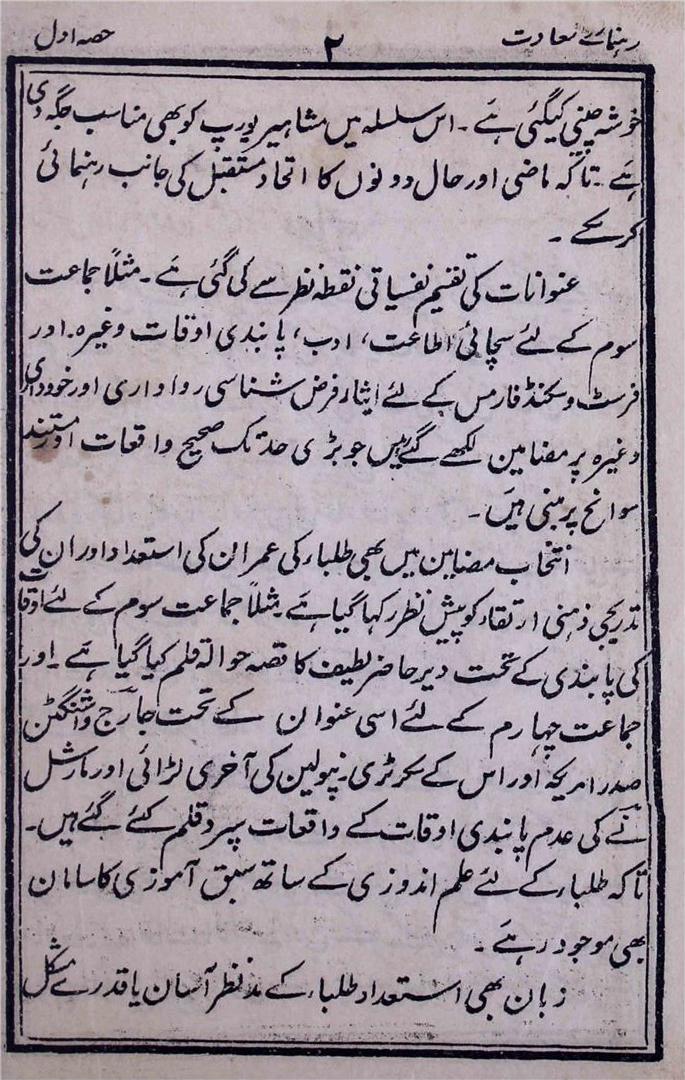 رہنمائے سعادت ۲ حصہ اول
خوشہ چینی کیگئی ہے۔ اس سلسلہ میں مشاہیر یورپ کو بھی مناسب جگہ دی
ہے۔ تاکہ ماضی اور حال دونوں کا اتحاد مستقبل کی جانب رہنمائی
کرسکے۔
عنوانات کی تقسیم نفسیاتی نقطہ نظر سے کی گئی ہے۔ مثلاً جماعت
سوم کے لئے سچائی اطاعت، ادب، پابندی اوقات وغیرہ۔ اور
فرسٹ و سکنڈ فارمس کے لئے ایثار فرض شناسی رواداری اور خودداری
وغیرہ پر مضامین لکھے گئے ہیں جو بڑی حد تک صحیح واقعات اور مستند
سوانح پر مبنی ہیں۔
انتخاب مضامین میں بھی طلباء کی عمر ان کی استعداد اور ان کی
تدریجی ذہنی ارتقاء کو پیش نظر رکہا گیا ہے۔ مثلاً جماعت سوم کے لئے اوقات
کی پابندی کے تحت دیر حاضر لطیف کا قصہ حوالۂ قلم کیا گیا ہے۔ اور
جماعت چہارم کے لئے اسی عنوان کے تحت جارج واشنگٹن
صدر امریکہ اور اس کے سکرٹری۔ نپولین کی آخری لڑائی اور مارشل
نے کی عدم پابندی اوقات کے واقعات سپرد قلم کئے گئے ہیں۔
تاکہ طلباء کے لئے علم اندوزی کے ساتھ سبق آموزی کا سامان
بھی موجود رہے۔
زبان بھی استعداد طلباء کے مدنظر آسان یا قدرے مشکل